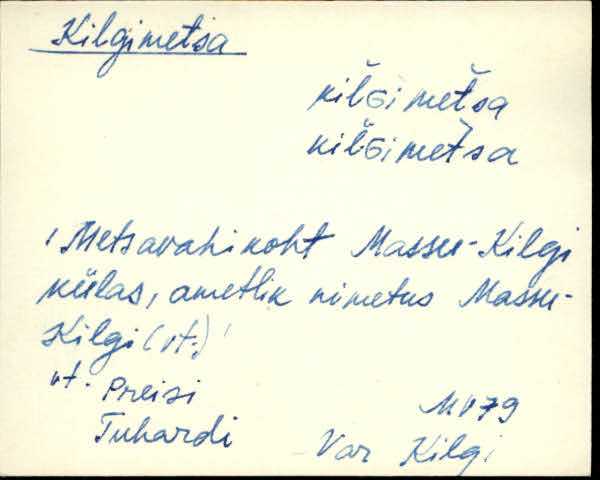 Kilgimetsa
kil̆Gi met̆sa
kil̆Gi met̆sa
' Metsavahikoht Massu-Kilgi
külas, ametlik nimetus Massu-
Kilgi (vt.) '
vt. Preisi
Tuhardi
MV79
Var Kilgi